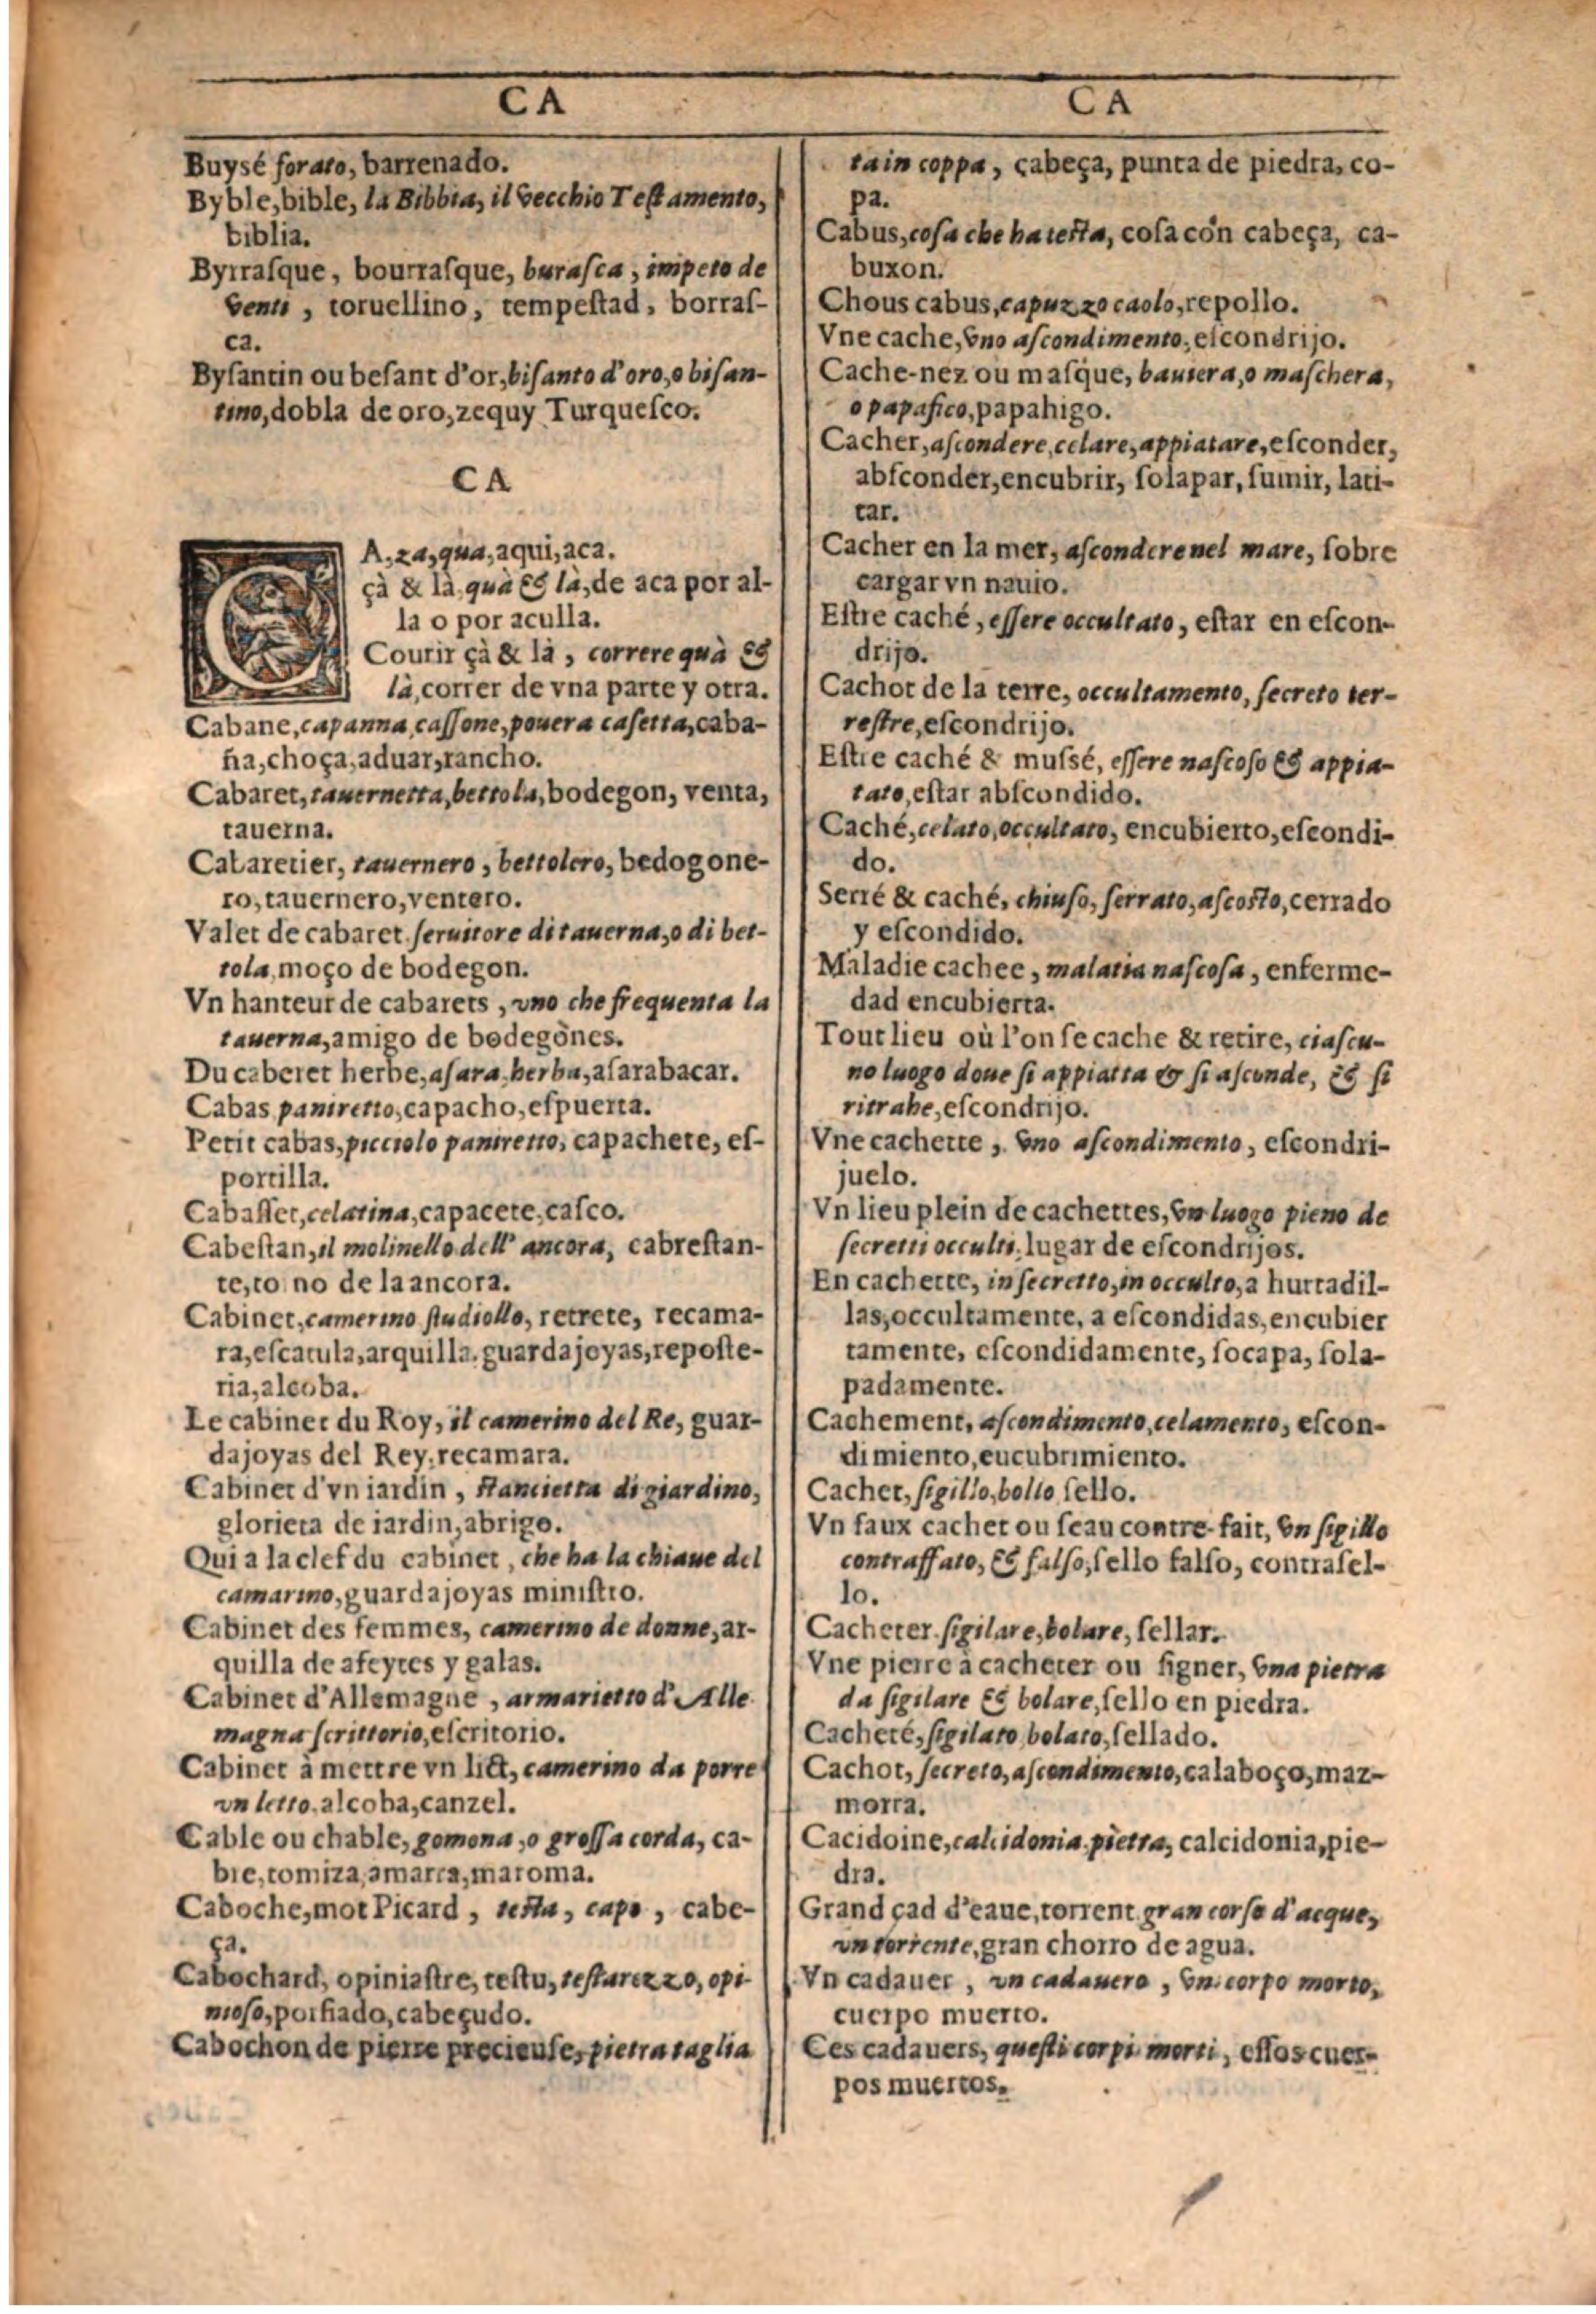 CA
CA
Buysé forato, barrenado.
Byble, bible, la Bibbia, il vecchio Teſtamento,
biblia.
Byrraſque, bourraſque, buraſca, impeto de
venti, toruellino, tempeſtad, borraſ-
ca.
Byſantin ou beſant d'or, biſanto d'oro, o biſan-
tino, dobla de oro, zequy Turqueſco.
CA
CA, za, qua, aqui, aca.
çà & là, quà & là, de aca por al-
la o por aculla.
Courir çà & là, correre quà &
là, correr de vna parte y otra.
Cabane, capanna, caſſone, pouera caſetta, caba-
ña, choça, aduar, rancho.
Cabaret, tauernetta, bettola, bodegon, venta,
tauerna.
Cabaretier, tauernero, bettolero, bedogone-
ro, tauernero, ventero.
Valet de cabaret, ſeruitore di tauerna, o di bet-
tola, moço de bodegon.
Vn hanteur de cabarets, vno che frequenta la
tauerna, amigo de bodegònes.
Du caberet herbe, aſara, herba, aſarabacar.
Cabas paniretto, capacho, eſpuerta.
Petit cabas, picciolo paniretto, capachete, eſ-
portilla.
Cabaſſet, celatina, capacete, caſco.
Cabeſtan, il molinello dell' ancora, cabreſtan-
te, to no de la ancora.
Cabinet, camerino ſtudiollo, retrete, recama-
ra, eſcatula, arquilla, guardajoyas, repoſte-
ria, alcoba.
Le cabinet du Roy, il camerino del Re, guar-
dajoyas del Rey, recamara.
Cabinet d'vn iardin, ſtancietta di giardino,
glorieta de iardin, abrigo.
Qui a la clef du cabinet, che ha la chiaue del
camarino, guardajoyas miniſtro.
Cabinet des femmes, camerino de donne, ar-
quilla de afeytes y galas.
Cabinet d'Allemagne, armarietto d'Alle
magna ſcrittorio, eſcritorio.
Cabinet à mettre vn lict, camerino da porre
vn letto, alcoba, canzel.
Cable ou chable, gomona, o groſſa corda, ca-
bre, tomiza, amarra, maroma.
Caboche, mot Picard, teſta, capo, cabe-
ça.
Cabochard, opiniaſtre, teſtu, teſtarezzo, opi-
nioſo, porfiado, cabeçudo.
Cabochon de pierre precieuſe, pietra taglia
ta in coppa, çabeça, punta de piedra, co-
pa.
Cabus, coſa che ha teſta, coſa con cabeça, ca-
buxon.
Chous cabus, capuzzo caolo, repollo.
Vne cache, vno aſcondimento, eſcondrijo.
Cache-nez ou maſque, bauiera, o maſchera,
o papafico, papahigo.
Cacher, aſcondere, celare, appiatare, eſconder,
abſconder, encubrir, ſolapar, ſumir, lati-
tar.
Cacher en la mer, aſcondere nel mare, ſobre
cargar vn nauio.
Eſtre caché, eſſere occultato, eſtar en eſcon-
drijo.
Cachot de la terre, occultamento, ſecreto ter-
reſtre, eſcondrijo.
Eſtre caché & muſſé, eſſere naſcoſo & appia-
tato, eſtar abſcondido.
Caché, celato, occultato, encubierto, eſcondi-
do.
Serré & caché, chiuſo, ſerrato, aſcoſto, cerrado
y eſcondido.
Maladie cachee, malatia naſcoſa, enferme-
dad encubierta.
Tout lieu où l'on ſe cache & retire, ciaſcu-
no luogo doue ſi appiatta & ſi aſconde, & ſi
ritrahe, eſcondrijo.
Vne cachette, vno aſcondimento, eſcondri-
juelo.
Vn lieu plein de cachettes, vn luogo pieno de
ſecretti occulti, lugar de eſcondrijos.
En cachette, in ſecretto, in occulto, a hurtadil-
las, occultamente, a eſcondidas, encubier
tamente, eſcondidamente, ſocapa, ſola-
padamente.
Cachement, aſcondimento, celamento, eſcon-
dimiento, eucubrimiento.
Cachet, ſigillo, bollo ſello.
Vn faux cachet ou ſeau contre-fait, vn ſigillo
contraffato, & falſo, ſello falſo, contraſel-
lo.
Cacheter ſigilare, bolare, ſellar.
Vne pierre à cacheter ou ſigner, vna pietra
da ſigilare & bolare, ſello en piedra.
Cacheté, ſigilato bolato, ſellado.
Cachot, ſecreto, aſcondimento, calaboço, maz-
morra.
Cacidoine, calcidonia pietra, calcidonia, pie-
dra.
Grand çad d'eaue, torrent gran corſo d'acque,
vn torrente, gran chorro de agua.
Vn cadauer, vn cadauero, vn corpo morto,
cuerpo muerto.
Ces cadauers, queſti corpi morti, eſſos cuer-
pos muertos.